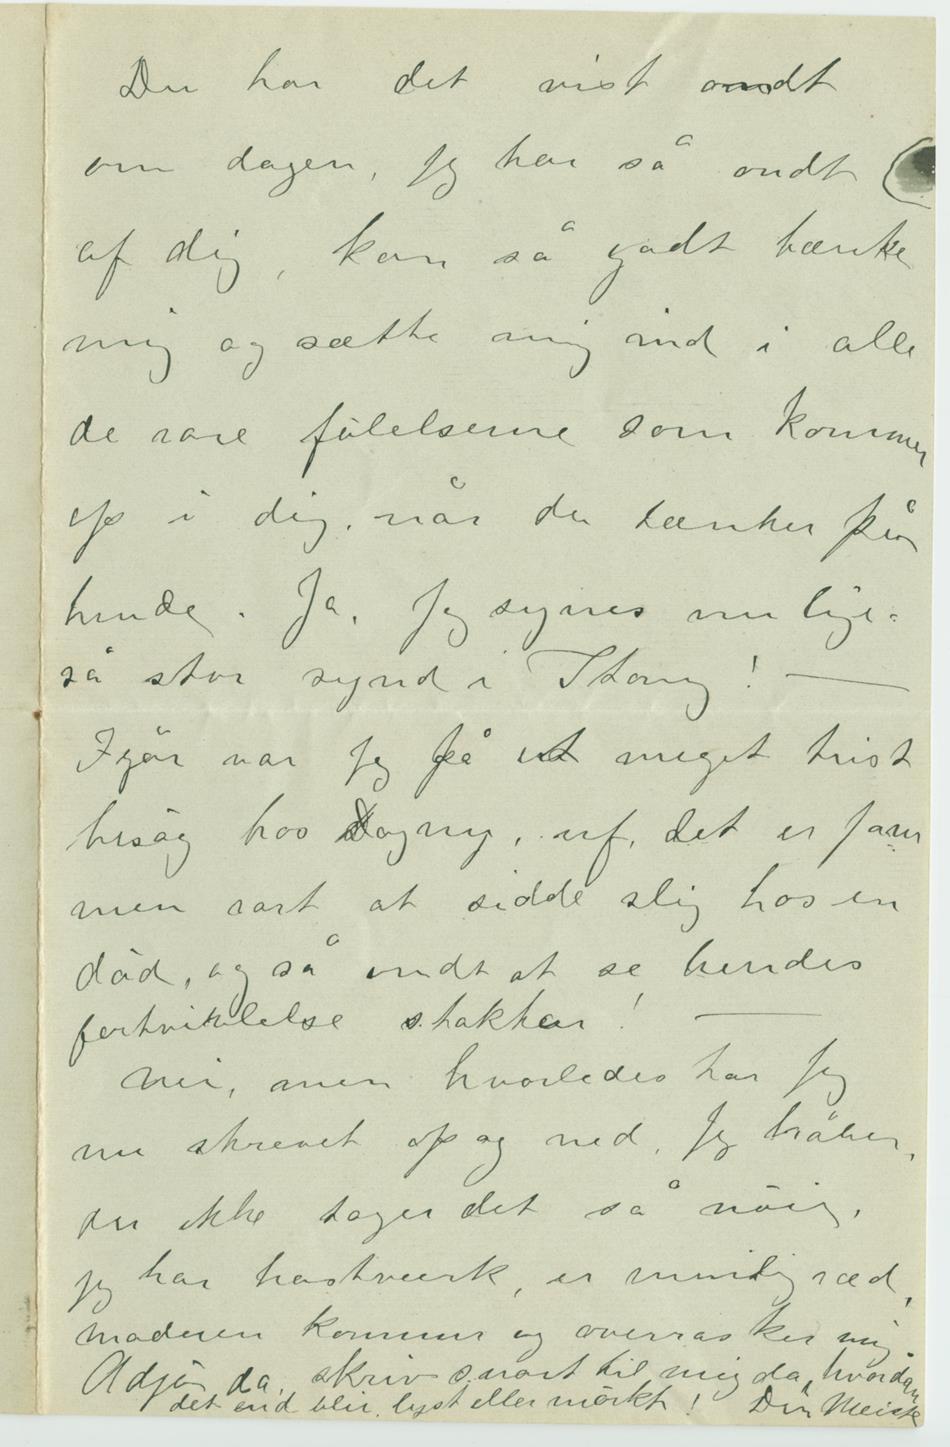 Du har det vist ondt
om dagen, jeg har så ondt
af dig, kan så godt tænke
mig og sætte mig ind i alle
de rare fölelserne som kommer
op i dig, når du tænker på
hende. Ja, jeg synes nu lige-
så stor synd i Thony! —
Igår var jeg på et meget trist
besög hos Dagny, uf, det er jam
men rart at sidde slig hos en
död, og så ondt at se hendes
fortvivlelse stakkar! —
Nei, men hvorledes har jeg
nu skrevet op og ned, jeg håber,
du ikke tager det så nöie,
jeg har hastværk, er ræd,
moderen kommer og overrasker mig
Adjö da, skriv snart til mig da, hvordan
det end blir, lyst eller mörkt! Din